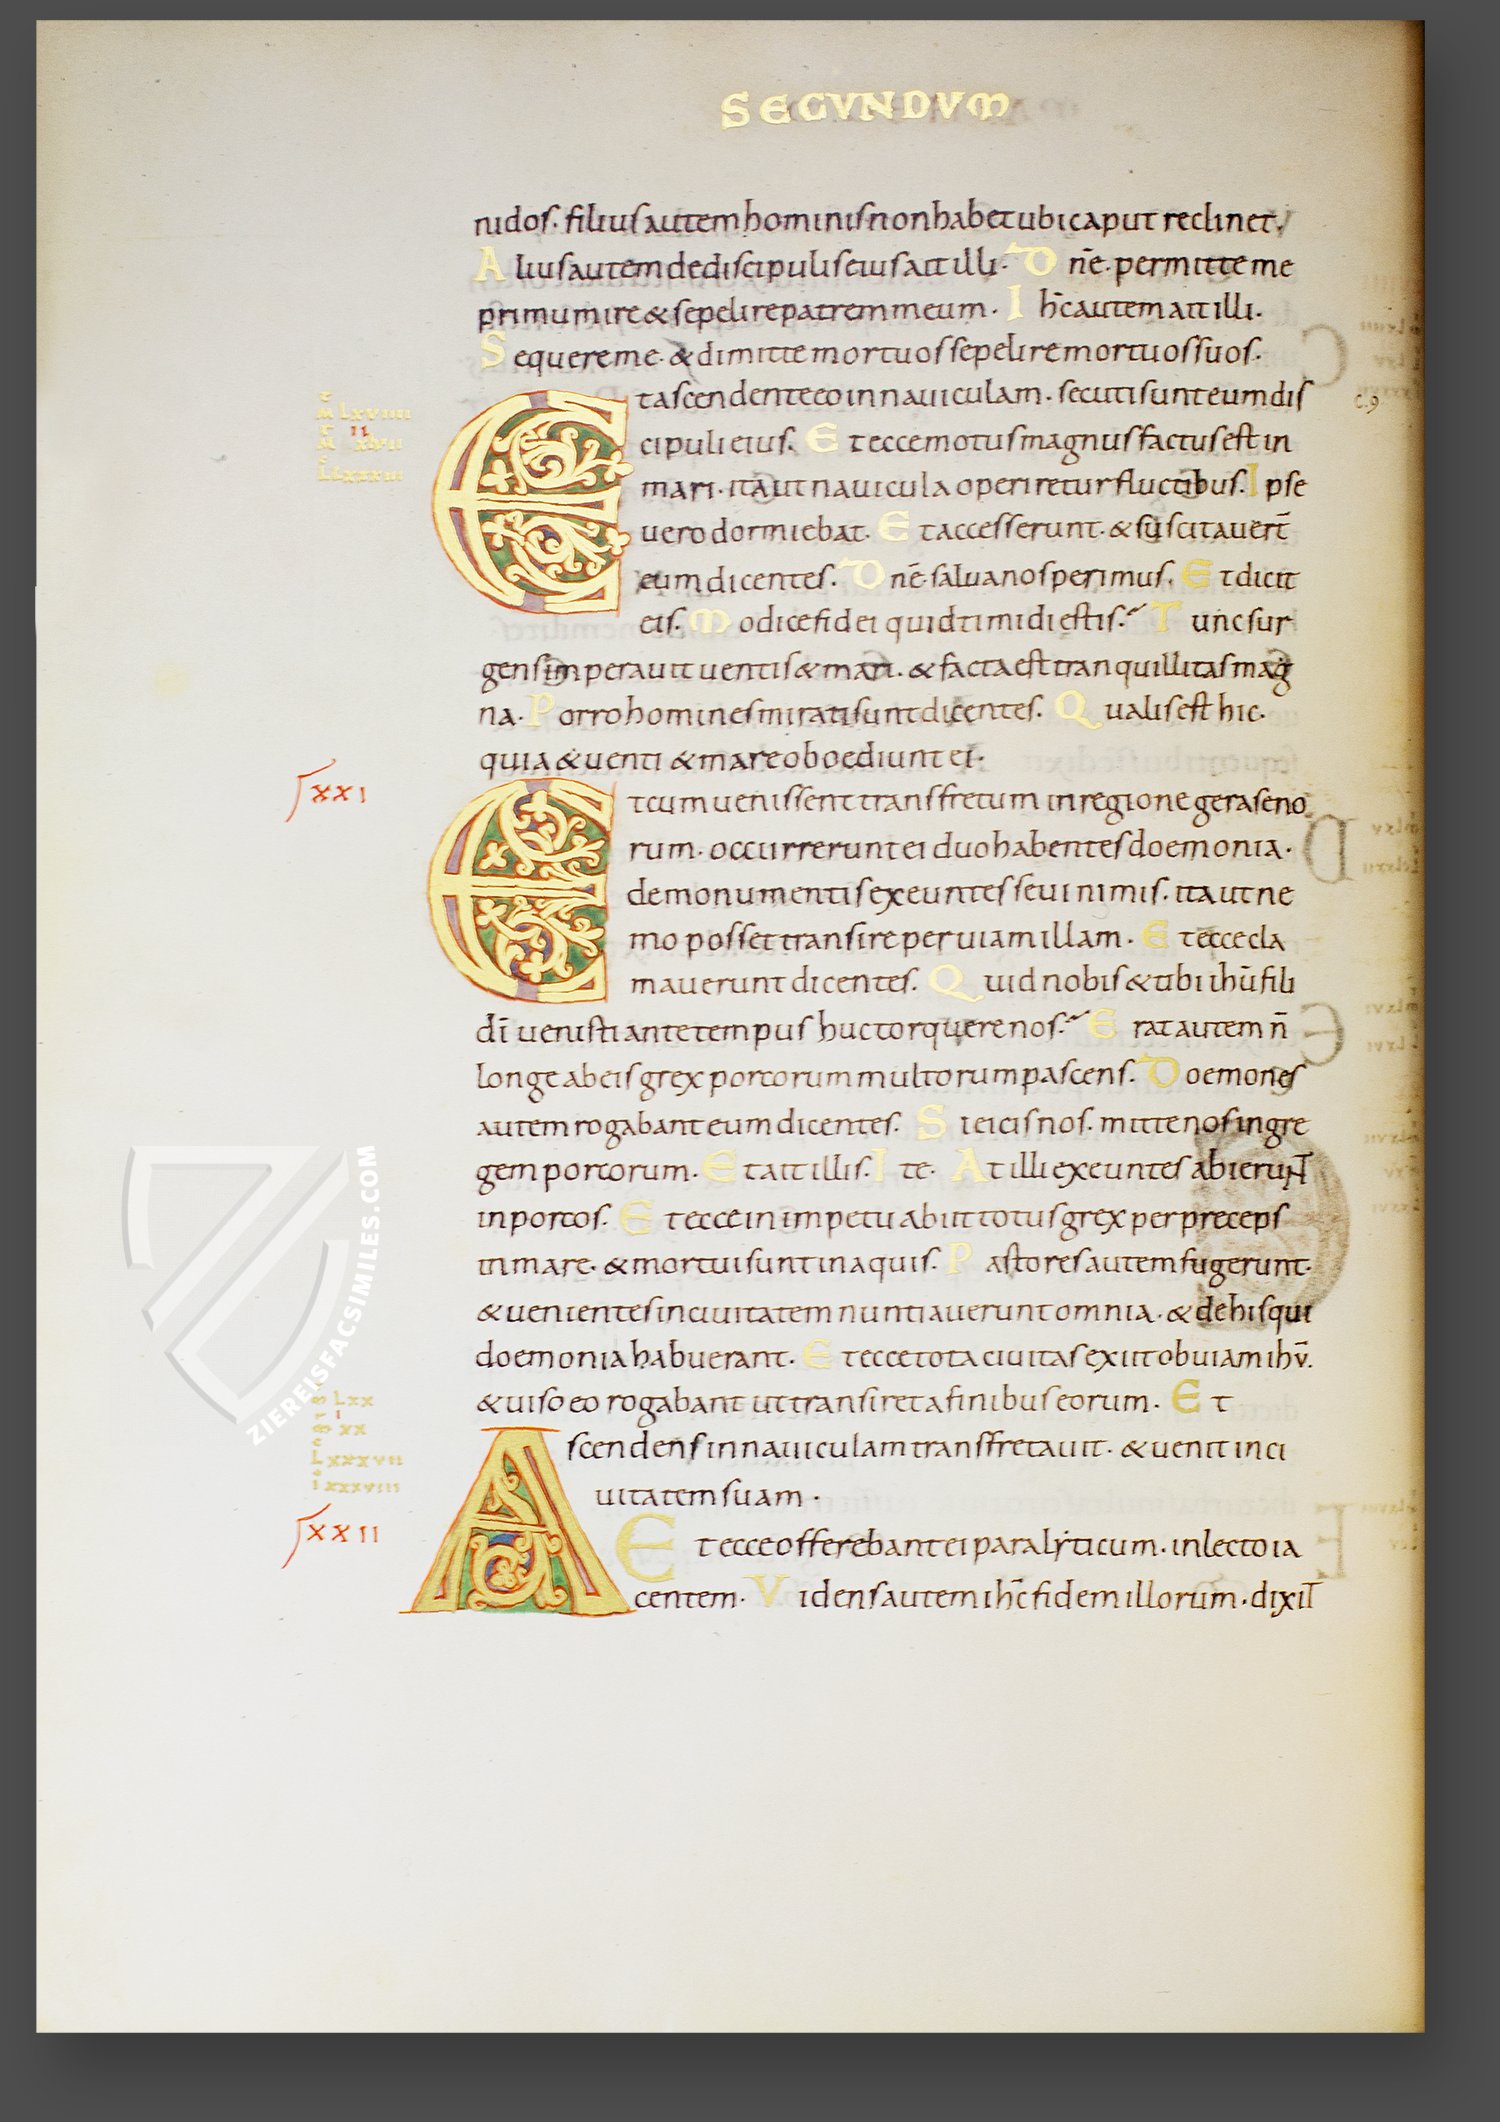 SECUNDVM
nidos. filius autem hominis non habet ubi caput reclinet.
Alius autem de discipulis eius ait illi. Dnē. permitte me
primum ire & sepelire patrem meum. Ihc̄ autem ait illi.
Sequere me. & dimitte mortuos sepelire mortuos suos.
Et ascendente eo in nauiculam. secuti sunt eum dis
cipuli eius. Et ecce motus magnus factus est in
mari. ita ut nauicula operiretur fluctibus. Ipse
uero dormiebat. Et accesserunt. & suscitauert̄
eum dicentes. Dnē salua nos perimus. Et dicit
eis. Modice fidei quid timidi estis. Tunc sur
gens imperauit uentis & mari. & facta est tranquillitas mag
na. Porro homines mirati sunt dicentes. Qualis est hic.
quia & uenti & mare oboediunt ei.
XXI
Et cum uenissent trans fretum in regione geraseno
rum. occurrerunt ei duo habentes doemonia.
de monumentis exeuntes seui nimis. ita ut ne
mo posset transire per uiam illam. Et ecce cla
mauerunt dicentes. Quid nobis & tibi ihū fili
dī uenisti ante tempus huc torquere nos. Erat autem n̄
longe ab eis grex porcorum multorum pascens. Doemones
autem rogabant eum dicentes. Si eicis nos. mitte nos in gre
gem porcorum. Et ait illis. Ite. At illi exeuntes abierunt
in porcos. Et ecce in impetu abiit totus grex per preceps
in mare. & mortui sunt in aquis. Pastores autem fugerunt.
& uenientes in ciuitatem nuntiauerunt omnia. & de his qui
doemonia habuerant. Et ecce tota ciuitas exiit obuiam ihū.
& uiso eo rogabant ut transiret a finibus eorum. Et
Ascendens in nauiculam transfretauit. & uenit in ci
uitatem suam.
XXII
Et ecce offerebant ei paralyticum. in lecto ia
centem. Videns autem ihc̄ fidem illorum. dixit
ZIEREISFACSIMILES.COM